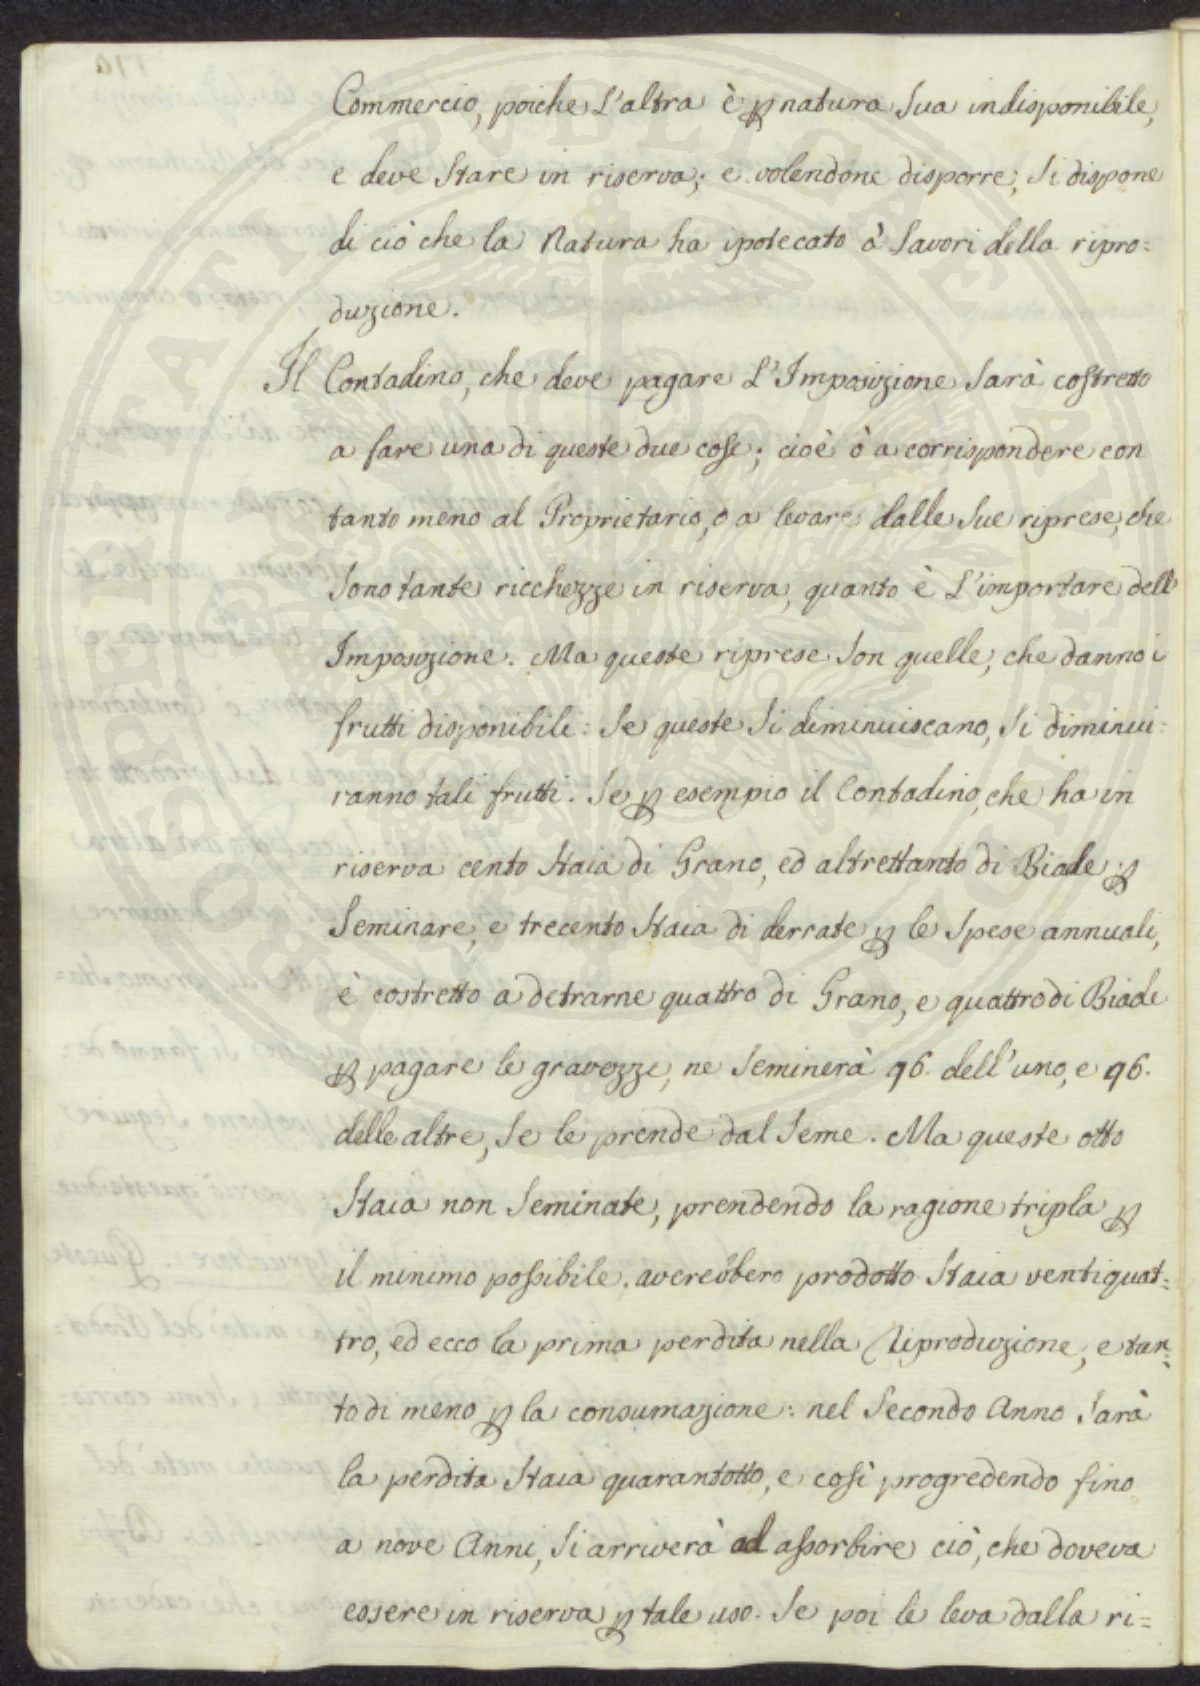 Commercio, poiche L'altra è ꝑ natura Sua indisponibile,
e deve Stare in riserva; e volendone disporre, Si dispone
di ciò che la Natura ha ipotecato à Lavori della ripro=
duzione.
Il Contadino, che deve pagare L'Imposizione Sarà costretto
a fare una di queste due cose; cioè ò a corrispondere con
tanto meno al Proprietario, o a levare dalle Sue riprese, che
Sono tante ricchezze in riserva, quanto è L'importare dell'
Imposizione. Ma queste riprese Son quelle, che danno i
frutti disponibili: Se queste Si diminuiscano, Si diminui=
ranno tali frutti. Se ꝑ esempio il Contadino, che ha in
riserva cento Staia di Grano, ed altrettanto di Biade ꝑ
Seminare, e trecento Staia di derrate ꝑ le Spese annuali,
è costretto a detrarne quattro di Grano, e quattro di Biade
ꝑ pagare le gravezze, ne Seminerà 96. dell'uno, e 96.
delle altre, Se le prende dal Seme. Ma queste otto
Staia non Seminate, prendendo la ragione tripla ꝑ
il minimo possibile, averebbero prodotto Staia ventiquat=
tro, ed ecco la prima perdita nella Riproduzione, e tan=
to di meno ꝑ la consumazione: nel Secondo Anno Sarà
la perdita Staia quarantotto, e così progredendo fino
a nove Anni, Si arriverà ad assorbire ciò, che doveva
essere in riserva ꝑ tale uso. Se poi le leva dalla ri=